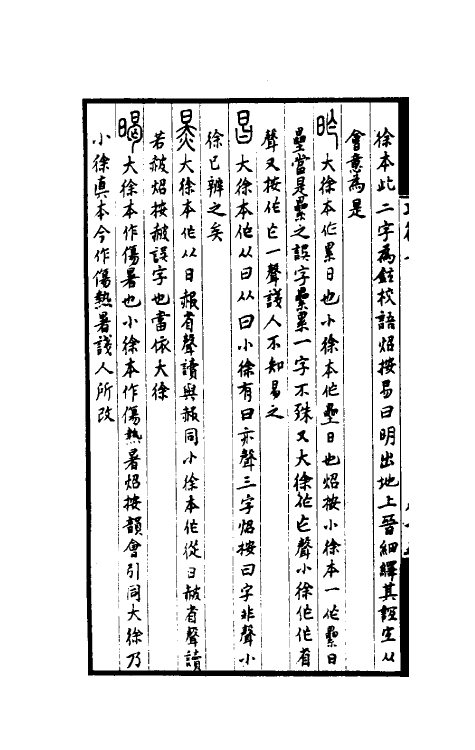 徐本此二字爲鉉校語炤按易曰明出地上晉細繹其誼宜从
會意爲是
昨 大徐本作累日也小徐本作壘日也炤按小徐本一作纍日
壘當是纍之誤字纍累一字不殊又大徐作乍聲小徐作作省
聲又按作乍一聲議人不知易之
昌 大徐本作从日从曰小徐有曰亦聲三字炤按曰字非聲小
徐已辨之矣
炅 大徐本作从日赧省聲讀與赧同小徐本作從日赧省聲讀
若赧炤按赧誤字也當依大徐
暍 大徐本作傷暑也小徐本作傷熱暑炤按韻會引同大徐乃
小徐真本今作傷熱暑議人所改